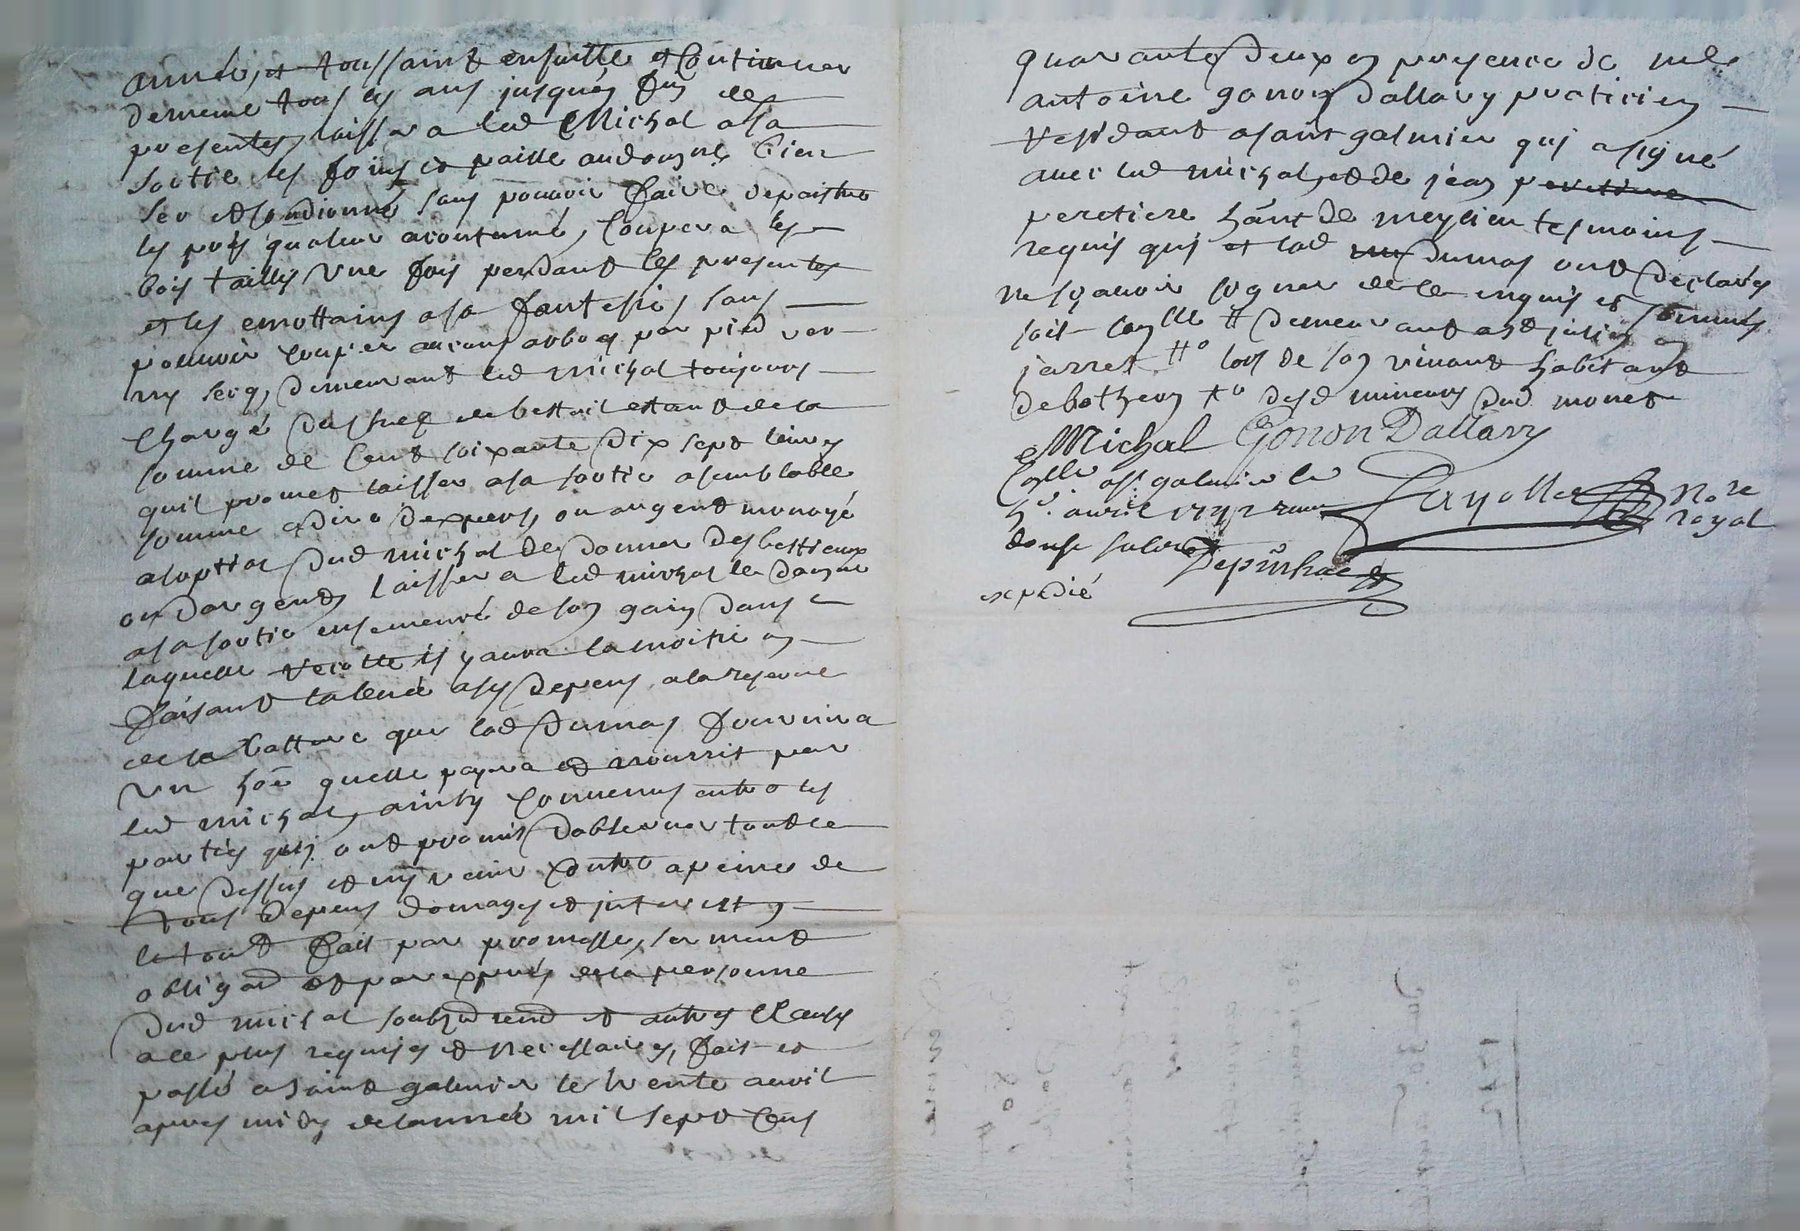 année, et toussaint ensuitte et Continuer
demême tous les ans jusques fin de
presentes, laissera led Michal a sa
sortie les foins et paille audomne bien
sér et sans pouvoir faire depaistre
les prés qualeur acoutumé, Coupera les
bois taillis une fois pendant les presentes
et les emottains a sa fantesie, sans
pouvoir couper aucuns arbres par pied ver
ny secq, demeurant led michal toujours
Chargé de bestail estant de la
somme de Cent soixante dix sept livres
quil promet laisser a sa sortie a semblable
somme a dire dexpers, ou argent monoyé
a loption dud michal de donner des bestieaux
ou dargent, laissera led michal le domne
a sa sortie ensemencé de son gain dans
laquelle recolte il y aura la moitié en
faisant la levée a ses depens a la reserve
de la batture que lad dumas fournira
un hoë quelle payera et nourrit par
led michal, ainsy Convenus entre les
parties qui ont promis dobserver tout ce
que dessus et ny venir Contre a peines de
tous depens domages et interests
le tout fait par promesse, serment
obligaõn et par exprés de la personne
dud michal soubz rend et autres Clauses
a ce plus requises et necessaires, fait et
passé a saint galmier le trente avril
apres midy de lannée mil sept Cens
quarante deux en presence de me
antoine gonon Dallary praticien
residant a saint galmier qui a signé
avec led michal, et de jean perettiere
peretiere hãnt de meylieu tesmoins
requis qui et lad dumas ont declarés
ne sçavoir signer de ce enquis et sommés
soit Conllé # demeurant a st julien en
jarret #o lors de son vivant habitant
de botheon +o desd mineurs dud monet
Michal Gonon Dallary
Conllé a st galmier le
5e. avril 1742 recu
douse sols
Fayolle Nore
royal
Depinhac
expedié